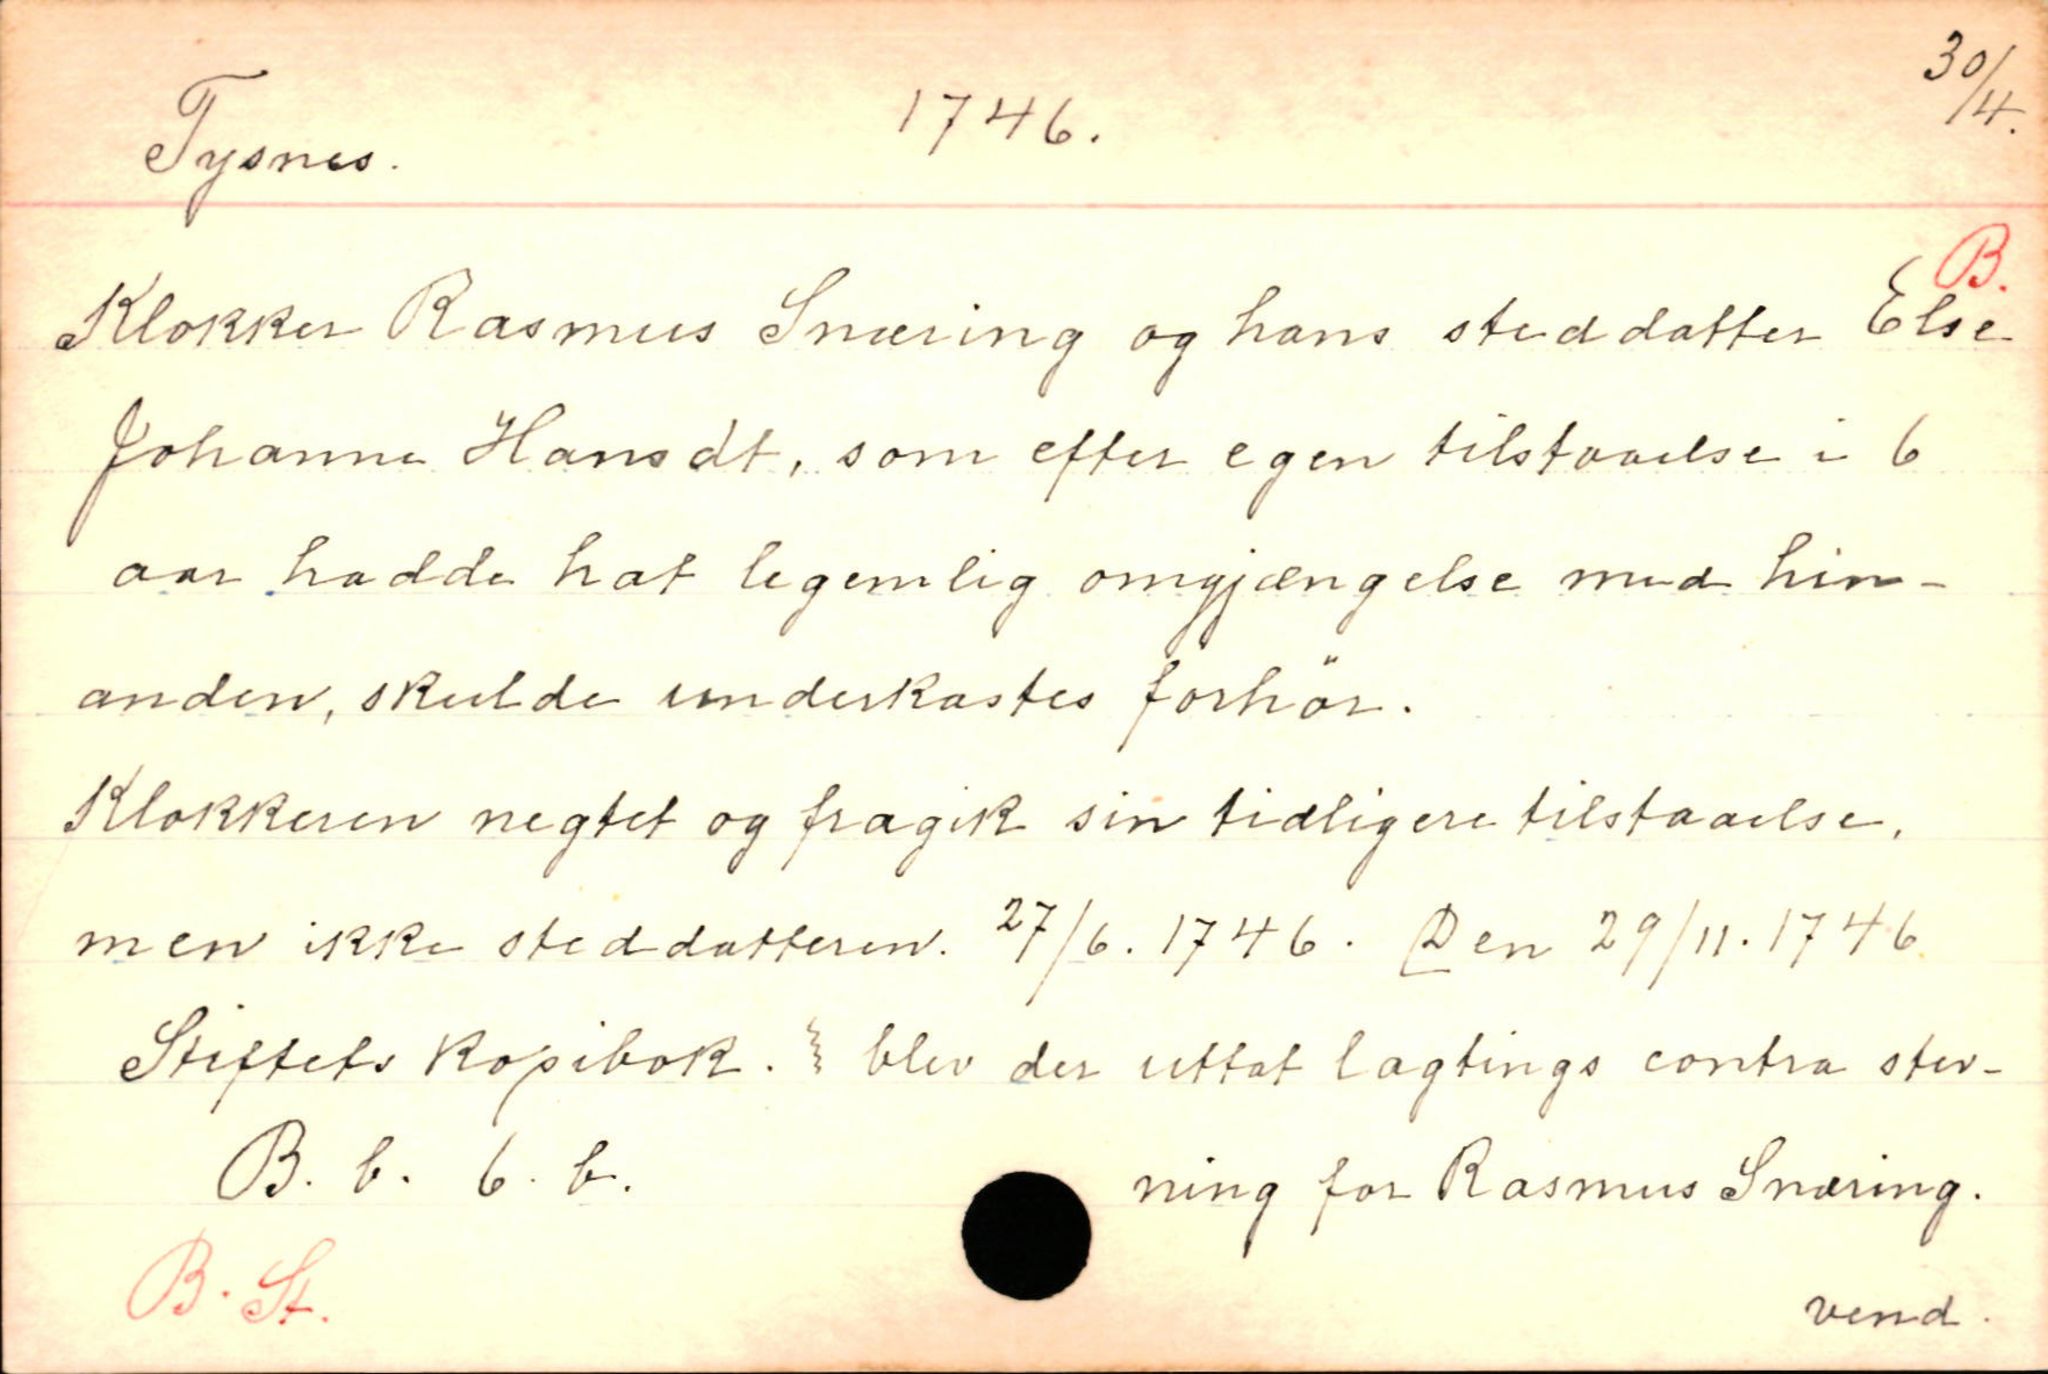 Tysnes. 1746. 30/4.
B.
Klokker Rasmus Snæring og hans steddatter Else
Johanne Hansdt, som efter egen tilstaaelse i 6
aar hadde hat legemlig omgjængelse med hin-
anden, skulde underkastes forhör.
Klokkeren negtet og fragik sin tidligere tilstaaelse,
men ikke steddatteren. 27/6. 1746. Den 29/11. 1746
Stiftets Kopibok. blev der uttat lagtings contra stev-
B. b. 6. b. ning for Rasmus Snæring.
B. St. vend.